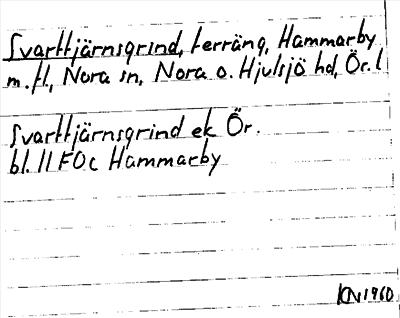 Svarttjärnsgrind, terräng, Hammarby
m.fl., Nora sn, Nora o. Hjulsjö hd, Ör. l
Svarttjärnsgrind ek Ör.
bl. 11 F0c Hammarby
KN 1960